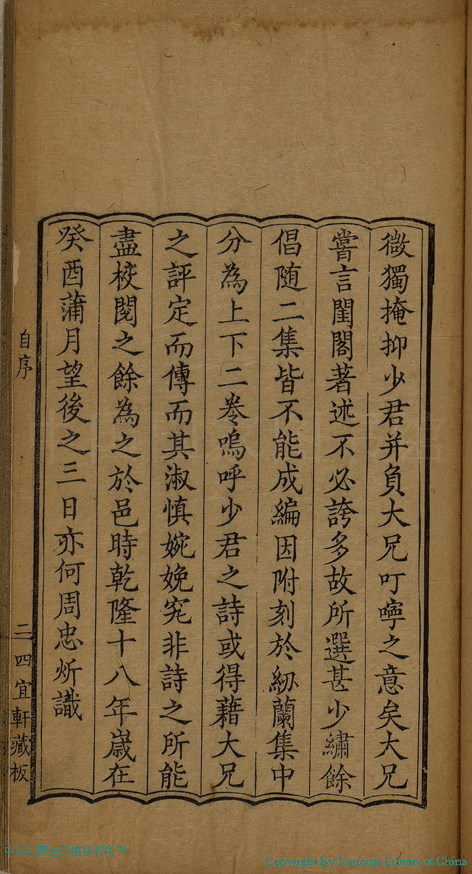 微獨掩抑少君并負大兄叮嚀之意矣大兄
嘗言閨閣著述不必誇多故所選甚少繡餘
倡随二集皆不能成編因附刻於紉蘭集中
分為上下二卷嗚呼少君之詩或得藉大兄
之評定而傳而其淑慎婉娩究非詩之所能
盡校閱之餘為之於邑時乾隆十八年嵗在
癸酉蒲月望後之三日亦何周忠炘識
自序
二
四宜軒藏板
Copyright by National Library of China